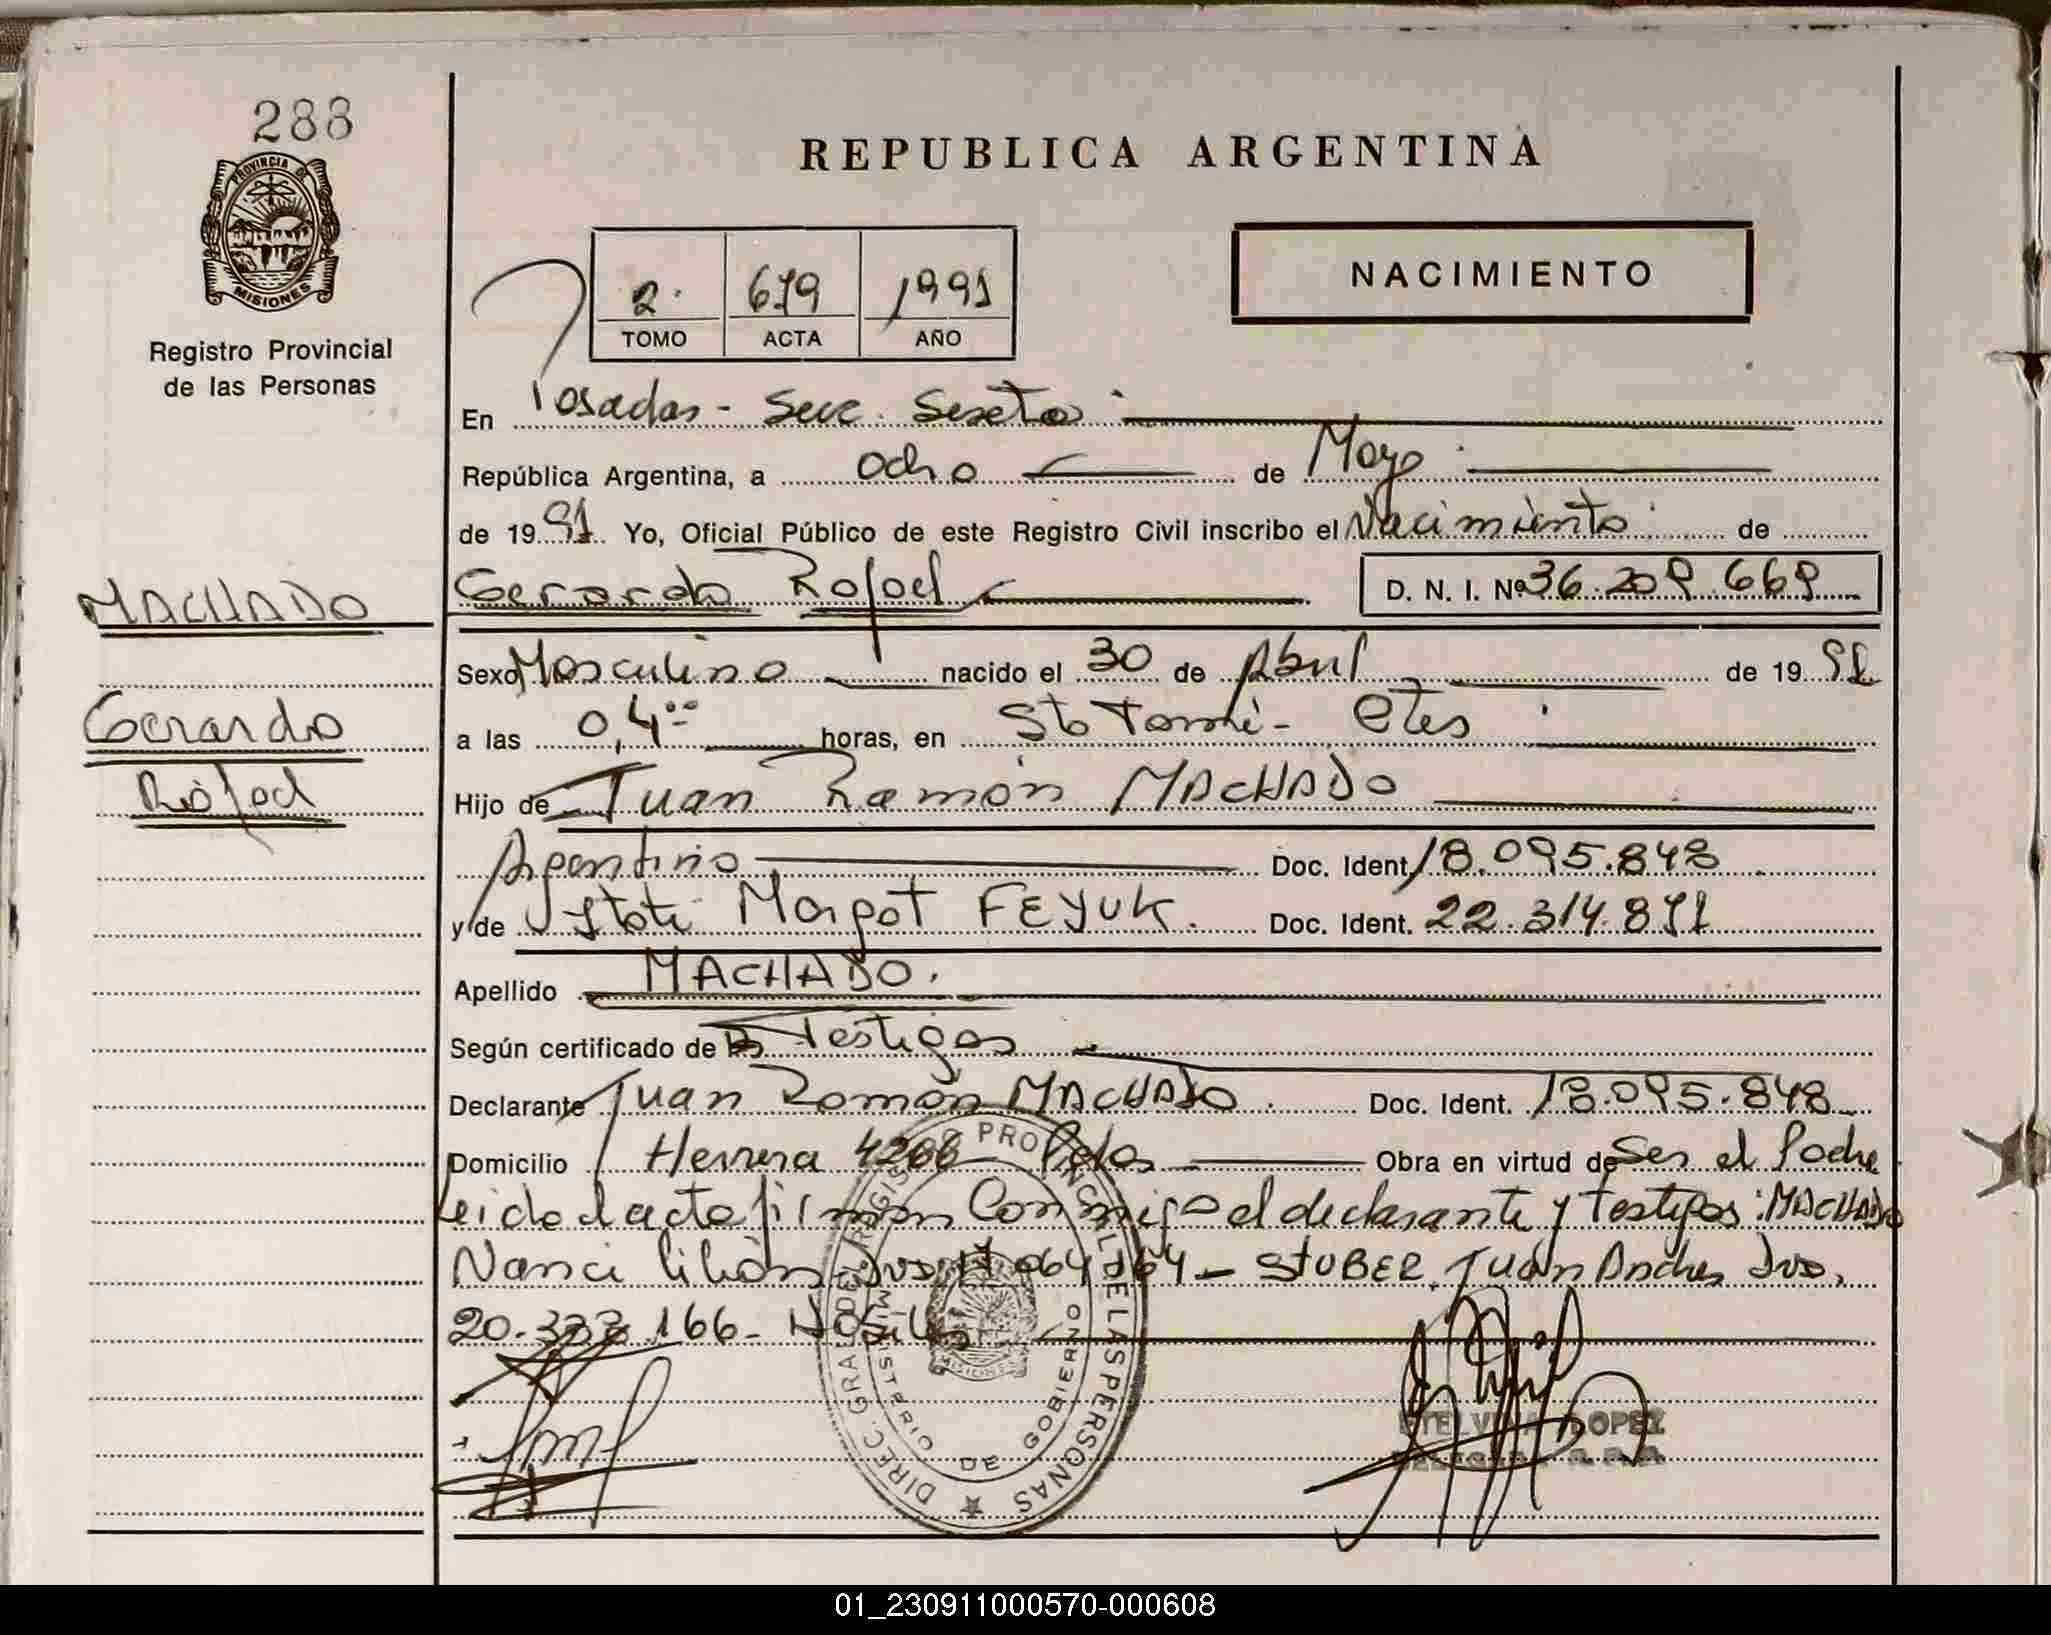 288
PROVINCIA DE
MISIONES
Registro Provincial
de las Personas
MACHADO
Gerardo
Rafael
REPUBLICA ARGENTINA
2. 679 1991
TOMO ACTA AÑO
NACIMIENTO
En Posadas - Secc. Sexta
República Argentina, a ocho de Mayo
de 1991. Yo, Oficial Público de este Registro Civil inscribo el Nacimiento de
Gerardo Rafael D. N. I. Nº 36.209.669
Sexo Masculino nacido el 30 de Abril de 1991
a las 0,4 horas, en Sto Tomé - Ctes
Hijo de Juan Ramón MACHADO
Argentino Doc. Ident. 18.095.848
y de Margot FEYUK. Doc. Ident. 22.314.871
Apellido MACHADO.
Según certificado de Testigos
Declarante Juan Ramón MACHADO Doc. Ident. 18.095.848
Domicilio Herrera 4266 Pdas Obra en virtud de Ser el Padre
Leido el acta firman Conmigo el declarante y Testigos: MACHADO
Nanci Lilian Dni 064 - STUBER, Juan Andres Dni.
20.333.166-
DIREC. GRAL. DEL REGISTRO PROVINCIAL DE LAS PERSONAS
MINISTERIO DE GOBIERNO
MISIONES
ETELVINA LOPEZ
01_230911000570-000608